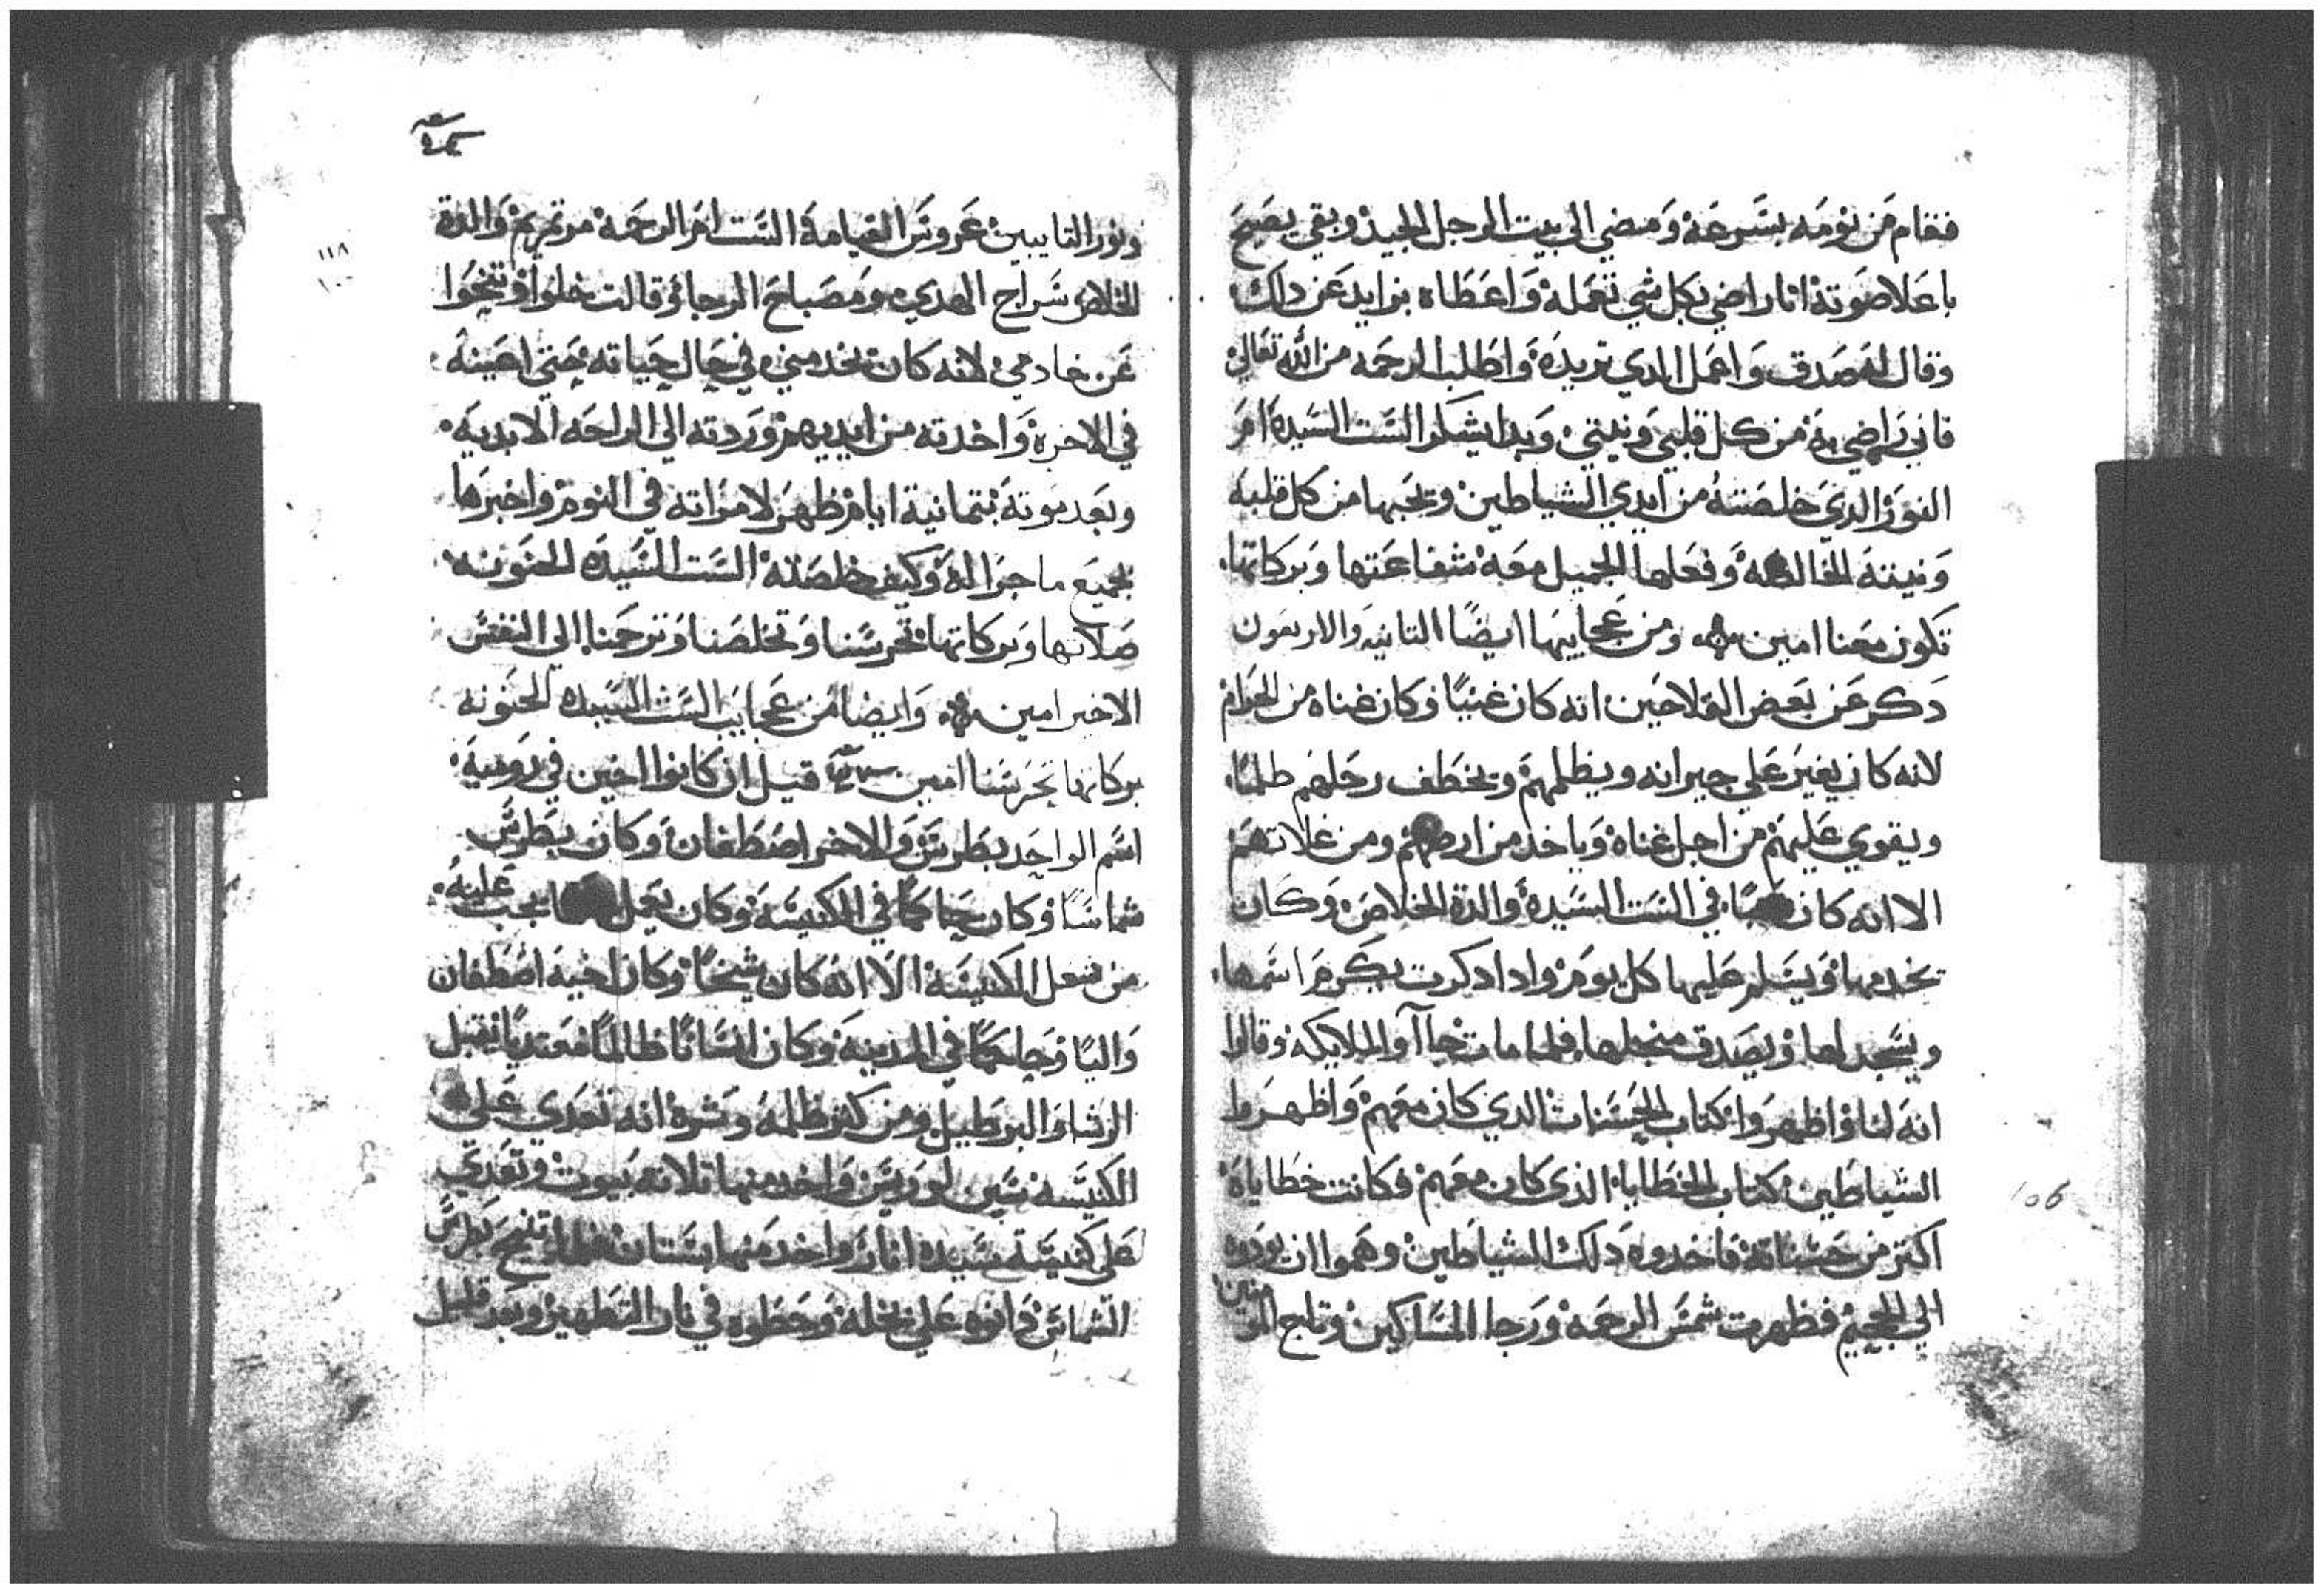 فقام من نومه بسرعه ومضي الي بيت الرجل الجيد وبقي يصيح
باعلا صوته انا راضي بكل شي تعمله واعطاه بزايد عن داك
وقال له صدق واعمل الدي تريده واطلب الرحمه من الله تعالي
فاني راضي به من كل قلبي ونيتي وبدا يشكر الست السيده ام
النور الدي خلصته من ايدي الشياطين ويحبها من كل قلبه
ونيته الخالصه وفعلها الجميل معه شفاعتها وبركاتها
تكون معنا امين ومن عجايبها ايضًا التانيه والاربعون
دكر عن بعض الفلاحين انه كان غنيًا وكان غناه من الحرام
لانه كان يغير علي جيرانه ويظلمهم ويخطف رحلهم ظلمًا
ويقوي عليهم من اجل غناه وياخد من ارضهم ومن غلاتهم
الا انه كان في الست السيده والدة الخلاص وكان
يخدمها ويسلم عليها كل يوم وادا دكرت يكرم اسمها
ويسجد لها ويصدق من اجلها فلما مات جاآوا الملايكه وقالوا
انه لنا واظهروا كتاب الحسنات الدي كان معهم واظهروا
الشياطين كتاب الخطايا الذي كان معهم فكانت خطاياه
اكتر من حسناته فاخدوه دلك الشياطين وهموا ان يودوه
الي الجحيم فظهرت شمس الرحمه ورجا المساكين وتاج المومنين
ونور التايبين عروس القيامه الست ام الرحمه مرتمريم والدة
الخلاص سراج الهدي ومصباح الرجا وقالت خلوا وتنحوا
عن خادمي لانه كان يخدمني في حال حياته حتي اعينه
في الاخره واخدته من ايديهم وردته الي الراحه الابديه
وبعد موته بتمانية ايام ظهر لامراته في النوم واخبرها
بجميع ما جرا له وكيف خلصته الست السيده الحنونه
صلاتها وبركاتها تحرسنا وتخلصنا وترحمنا الي النفس
الاخير امين وايضا من عجايب الست السيده الحنونه
بركاتها تحرسنا امين قيل ان كانوا اخين في روميه
اسم الواحد بطرس والاخر اصطفان وكان بطرس
شماسًا وكان حاكمًا في الكنيسه وكان يعمل يجب عليه
من شعل الكنيسه الا انه كان شيخًا وكان اخيه اصطفان
واليًا وحاكمًا في المدينه وكان انسانًا ظالمًا معتديًا يقبل
الرشا والبرطيل ومن كتر ظلمه وشره انه تعدي علي
الكنيسه سين لورنس واخد منها تلاته بيوت وتعدي
علي كنيسة سيده اناز واخد منها بستان فلما تنيح بطرس
الشماس دانوه علي بخله وحطوه في نار التطهير وبعد قليل
١١٨
١٠٠
106